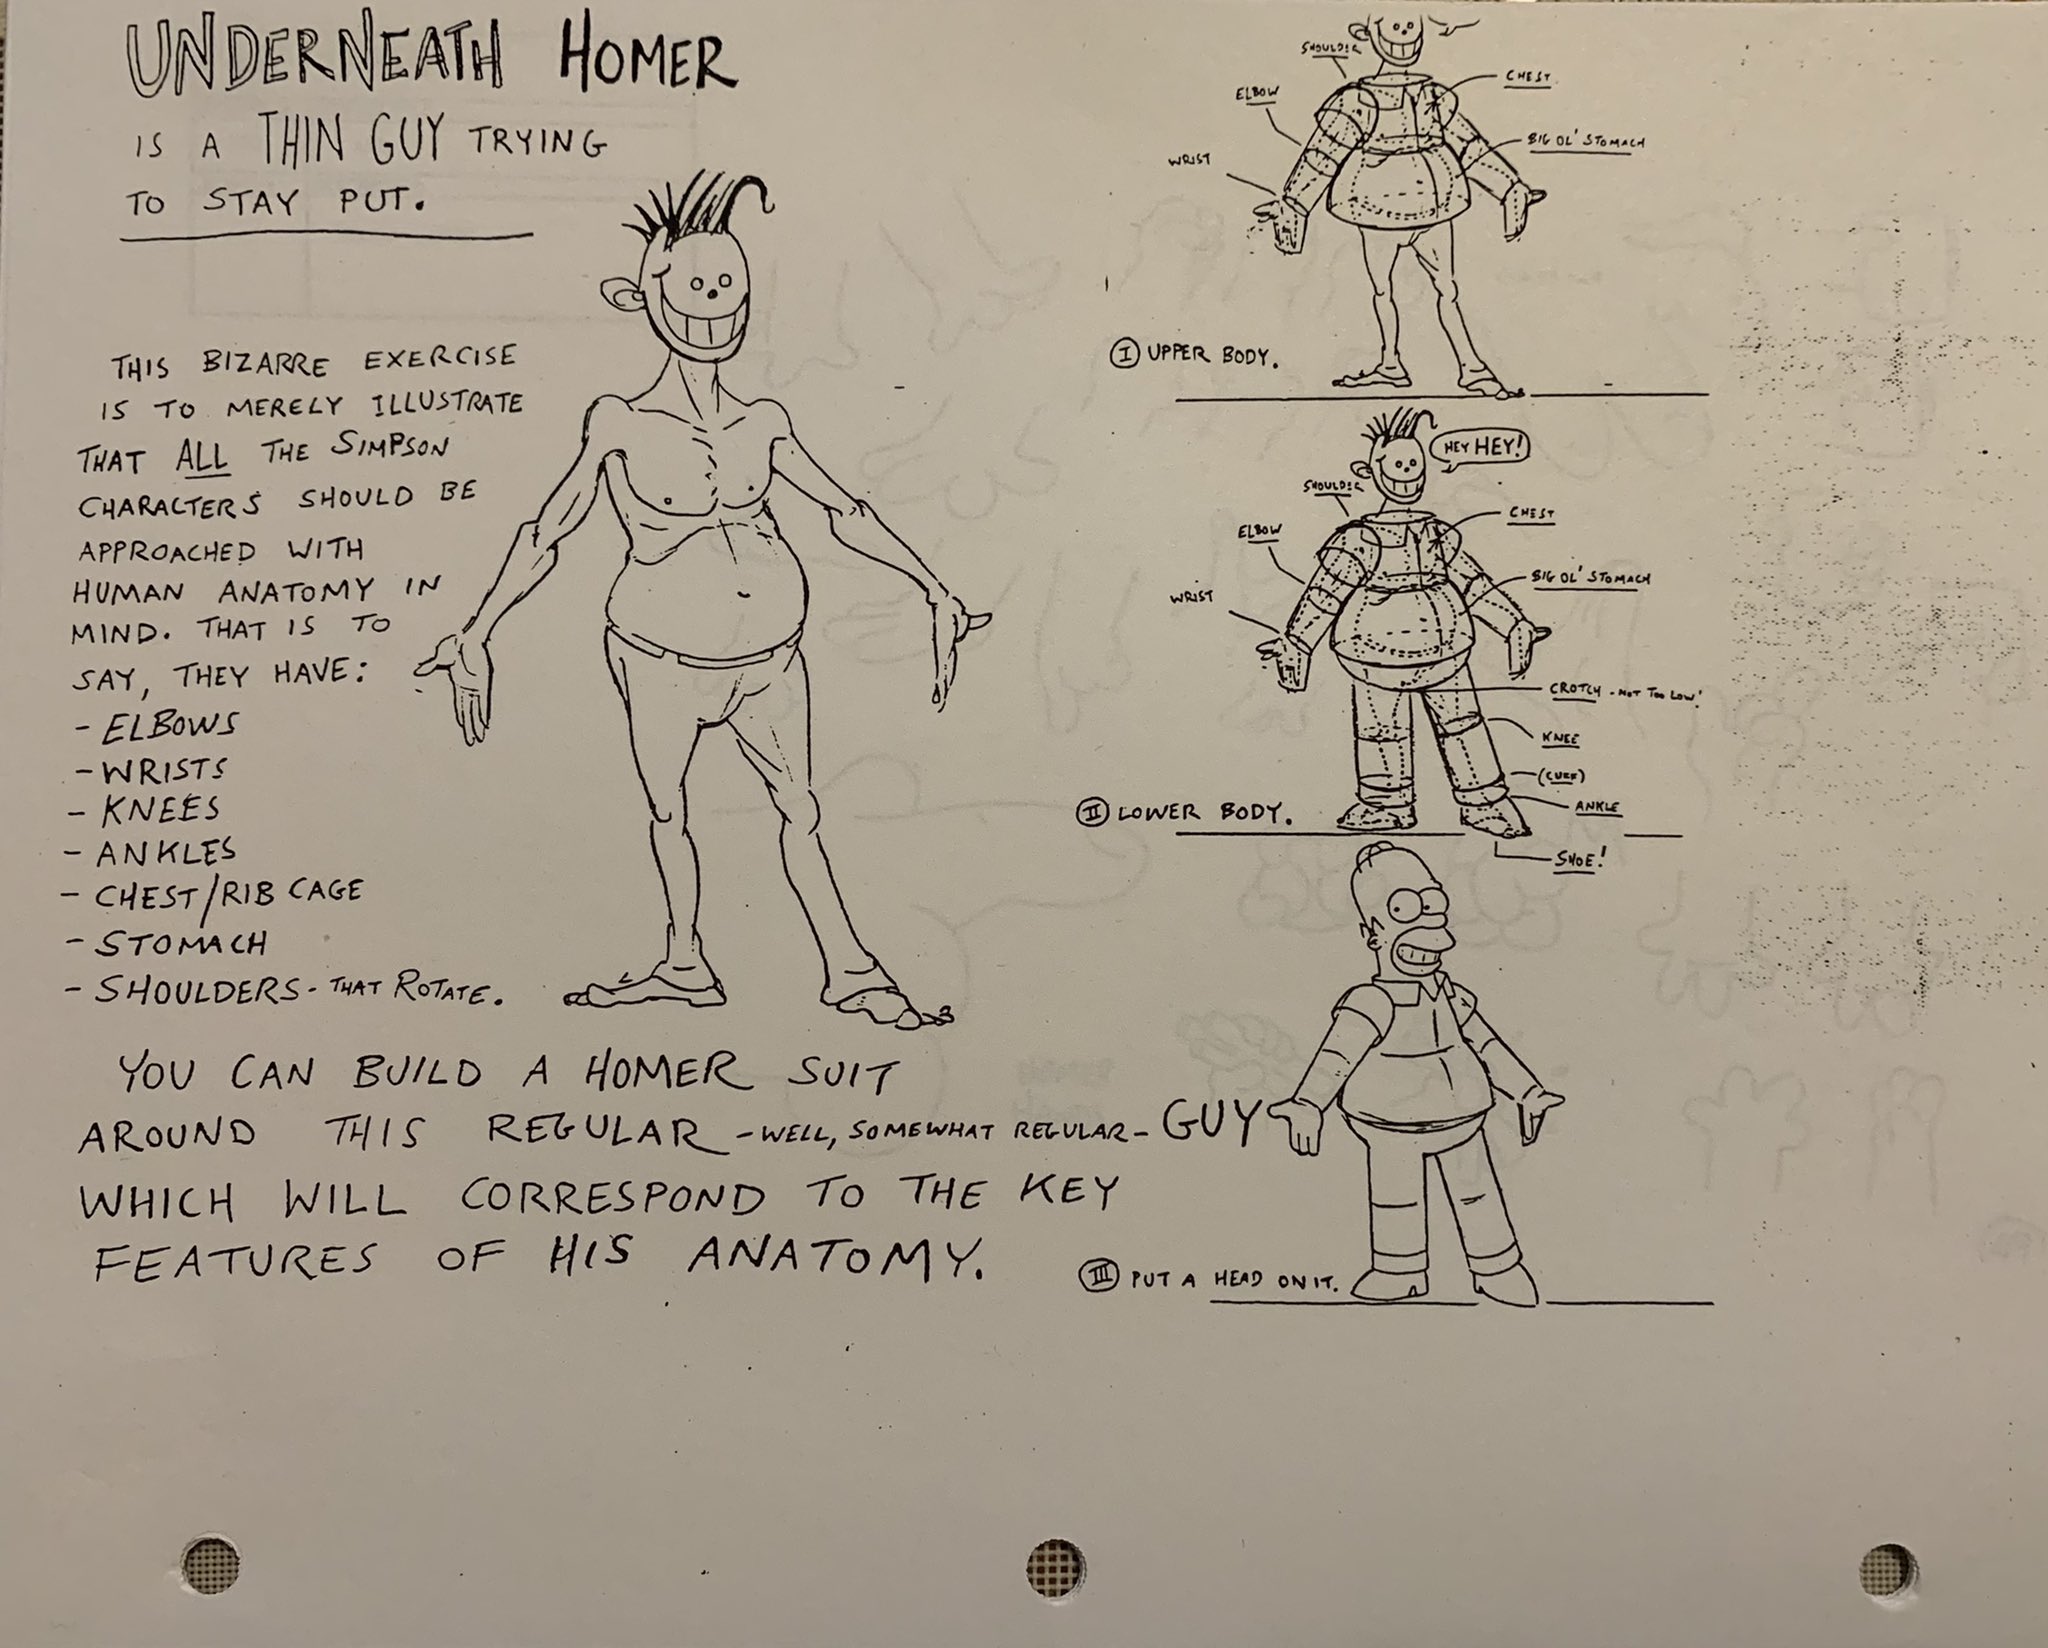 UNDERNEATH HOMER
IS A THIN GUY TRYING
TO STAY PUT.
THIS BIZARRE EXERCISE
IS TO MERELY ILLUSTRATE
THAT ALL THE SIMPSON
CHARACTERS SHOULD BE
APPROACHED WITH
HUMAN ANATOMY IN
MIND. THAT IS TO
SAY, THEY HAVE:
- ELBOWS
- WRISTS
- KNEES
- ANKLES
- CHEST/RIB CAGE
- STOMACH
- SHOULDERS - THAT ROTATE.
YOU CAN BUILD A HOMER SUIT
AROUND THIS REGULAR - WELL, SOMEWHAT REGULAR - GUY
WHICH WILL CORRESPOND TO THE KEY
FEATURES OF HIS ANATOMY.
SHOULDER
CHEST
ELBOW
BIG OL' STOMACH
WRIST
I UPPER BODY.
HEY HEY!
SHOULDER
CHEST
ELBOW
BIG OL' STOMACH
WRIST
CROTCH - NOT TOO LOW!
KNEE
(CUFF)
ANKLE
II LOWER BODY.
SHOE!
III PUT A HEAD ON IT.